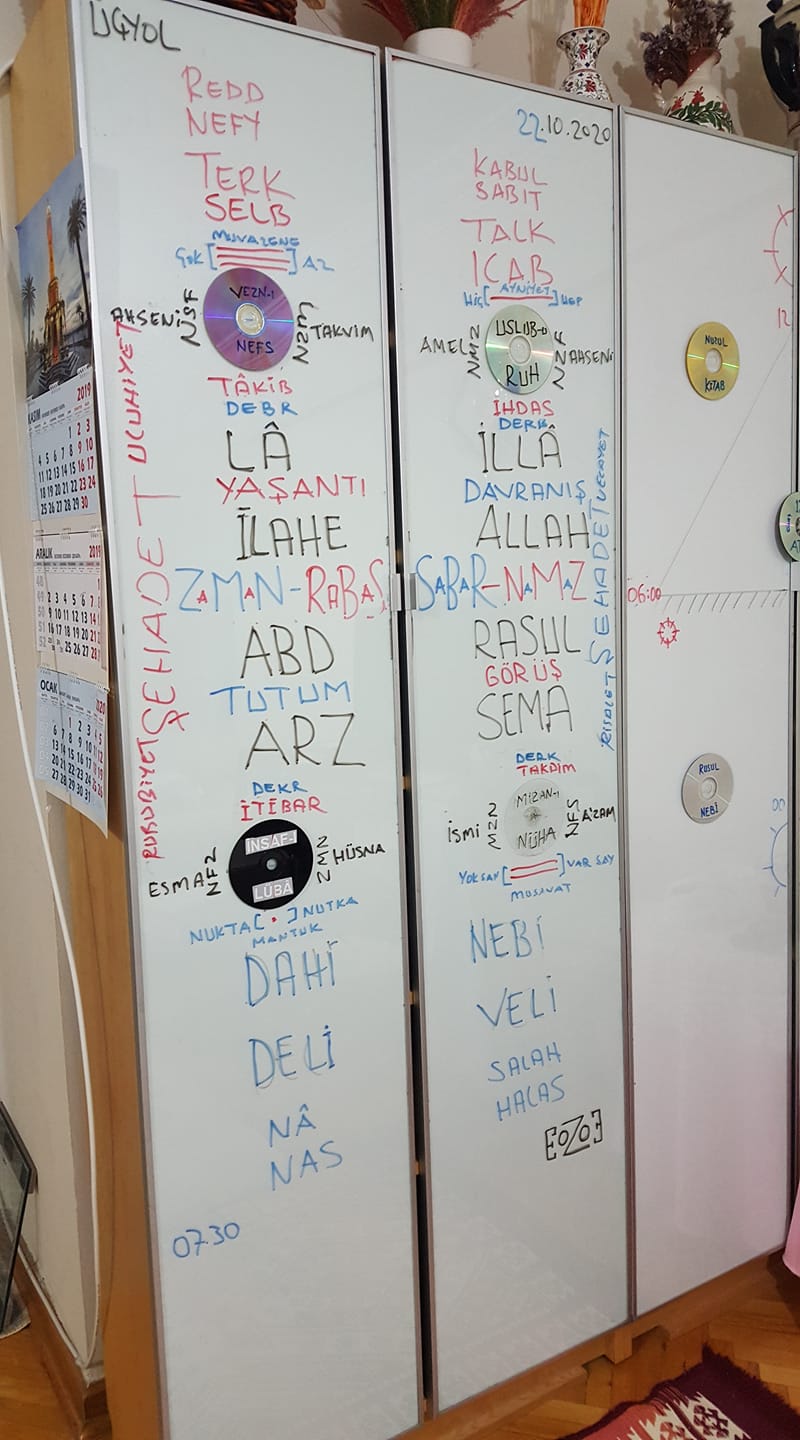 ÜÇYOL
REDD
NEFY
TERK
SELB
MUVAZENE
ÇOK [ ] AZ
AHSENİ NSF VEZN-İ NEFS NZM TAKVİM
TÂKİB
DEBR
LÂ
YAŞANTI
İLAHE
ZAMAN-RABAŞ
ABD
TUTUM
ARZ
DEKR
İTİBAR
ESMA NFZ İNSAF- LÜBÂ NMZ HÜSNA
NUKTA [ • ] NUTKA
MANTUK
DAHİ
DELİ
NÂ
NAS
07.30
ULUHİYET
ŞEHADET
RUBUBİYET
22.10.2020
KABUL
SABIT
TALK
ICAB
HİÇ [AYNİYET] HEP
AMEL NMZ USLUB-U RUH NZF AHSENİ
İHDAS
DERK
İLLÂ
DAVRANIŞ
ALLAH
SABAR-NAMAZ
RASUL
GÖRÜŞ
SEMA
DERK
TAKDİM
İSMİ MZN MİZAN-I NÜHA NFS A'ZAM
YOK SAY [ ] VAR SAY
MUSAVAT
NEBİ
VELİ
SALAH
HALAS
EOZOE
VELAYET
ŞEHADET
RİSALET
12
NUZUL
KİTAB
06:00
RUSUL
NEBİ
KASIM 2019
ARALIK 2019
OCAK 2020